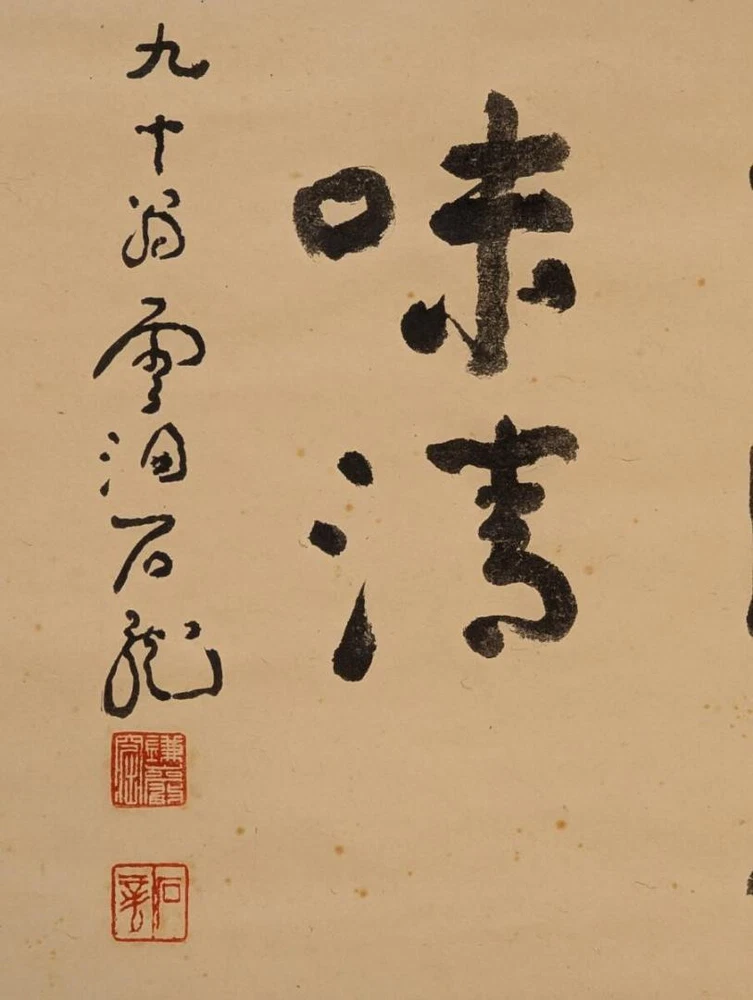 味清
九十翁雲洞石龍
石龍